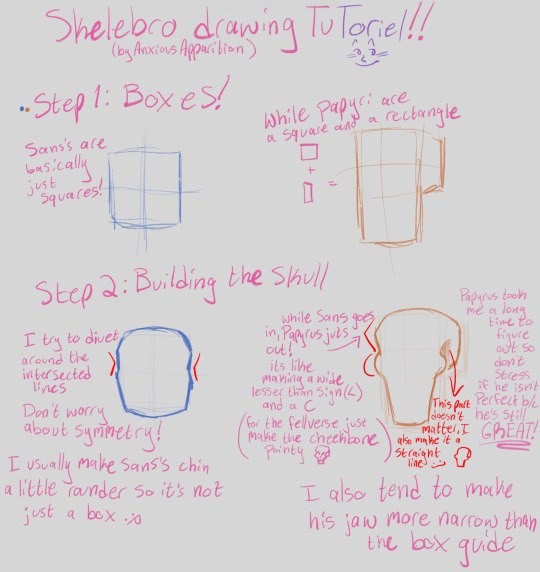 Skelebro drawing TuToriel!!
(by Anxious Apparition)
Step 1: Boxes!
Sans's are
basically
just
squares!
While Papyri are
a square and a rectangle
+
=
Step 2: Building the Skull
I try to divet
around the
intersected
lines
Don't worry
about symmetry!
I usually make Sans's chin
a little rounder so it's not
just a box :)
while Sans goes
in, Papyrus juts
out!
its like
making a wide
lesser than sign (<)
and a C
(for the fellverse just
make the cheekbone
pointy)
This part
doesn't
matter, I
also make it a
straight
line :)
Papyrus took
me a long
time to
figure
out so
don't
stress
if he isn't
Perfect b/c
he's still
GREAT!
I also tend to make
his jaw more narrow than
the box guide